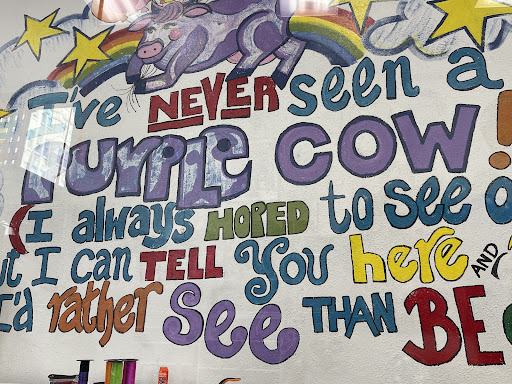 I've NEVER seen a
PURPLE COW!
(I always HOPED to see o
ut I can TELL You here AND
I'd rather See THAN BE